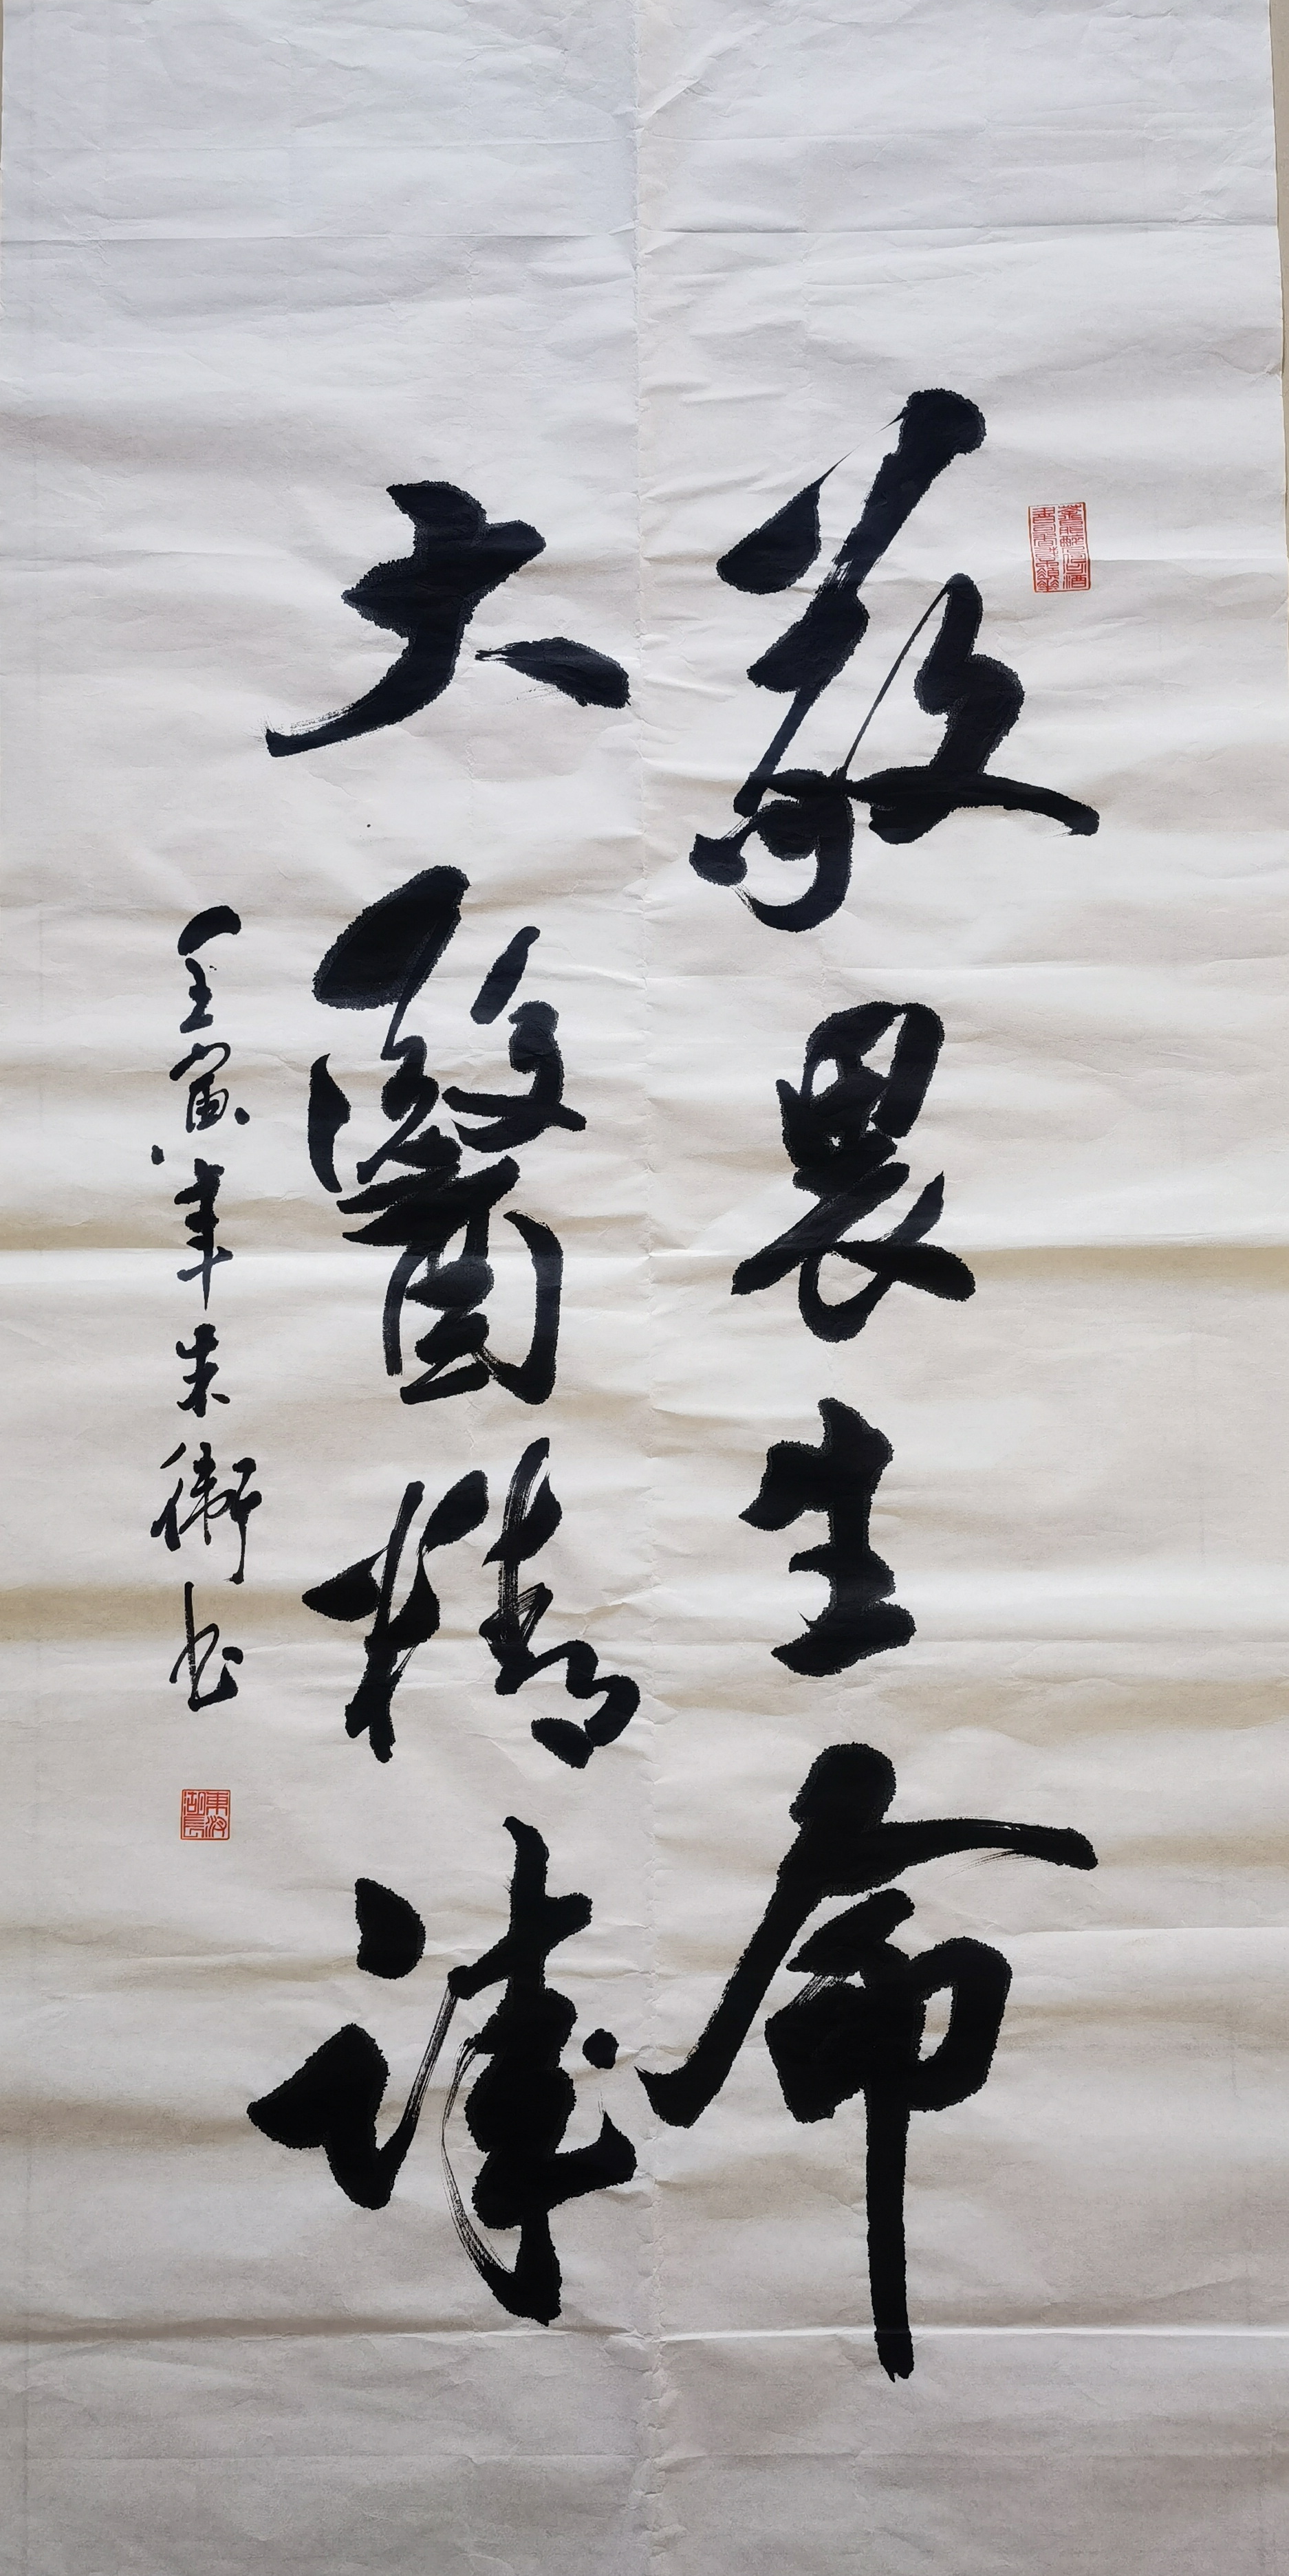 敬畏生命
大醫精誠
壬寅年朱衛书